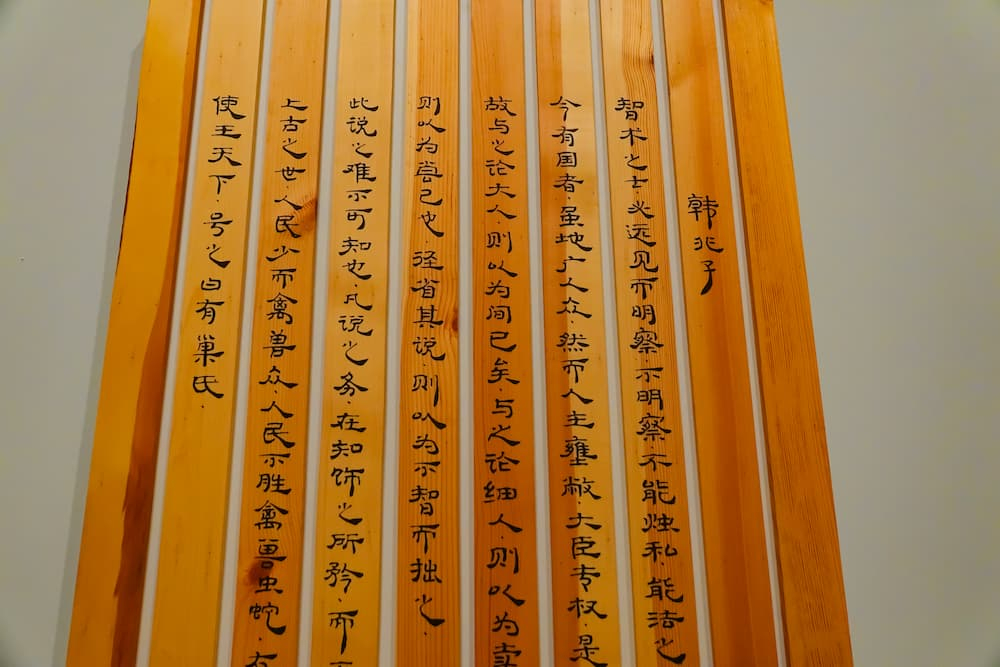 韩非子
智术之士·必远见而明察·不明察·不能烛私·能法之
今有国者·虽地广人众·然而人主壅敝·大臣专权·是
故与之论大人·则以为间已矣·与之论细人·则以为卖
则以为尝己也·径省其说·则以为不智而拙之·
此说之难不可知也·凡说之务·在知饰之所矜·而
上古之世·人民少而禽兽众·人民不胜禽兽虫蛇·有
使王天下·号之曰有巢氏·